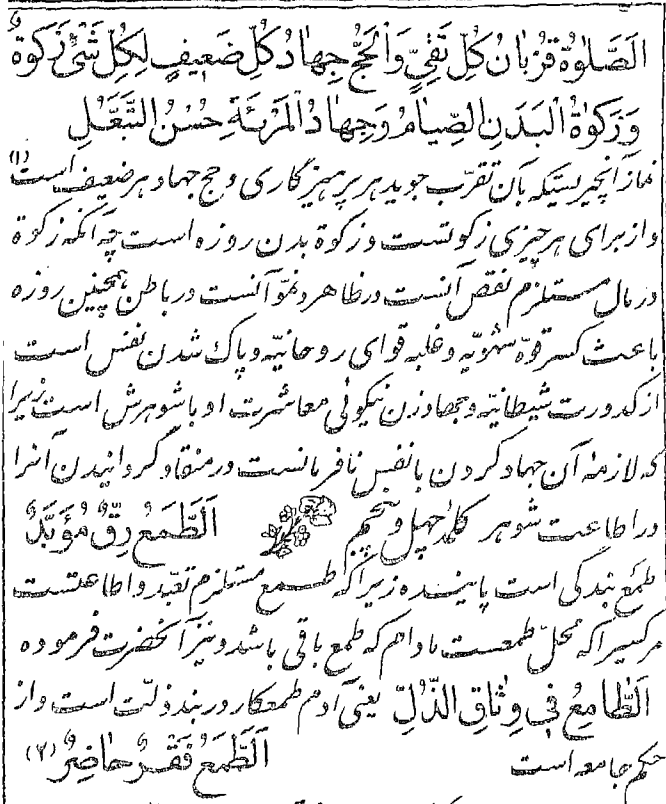 اَلصَّلٰوةُ قُرْبانُ كُلِّ تَقِيٍّ وَالْحَجُّ جِهادُ كُلِّ ضَعِيفٍ لِكُلِّ شَئٍْ زَكٰوةٌ
وَزَكٰوةُ الْبَدَنِ الصِّيامُ وَجِهادُ الْمَرْئَةِ حُسْنُ التَّبَعُّلِ
نماز آنچیزیستیکه بآن تقرّب جوید هر پرهیزگاری و حج جهاد هر ضعیف است (۱)
و از برای هر چیزی زکوتست و زکوة بدن روزه است چه آنکه زکوة
در مال مستلزم نقص آنست در ظاهر و نموّ آنست در باطن همچنین روزه
باعث کسر قوّه شهویّه و غلبه قوای روحانیّه و پاک شدن نفس است
از کدورت شیطانیّه و جهاد زن نیکوئی معاشرت او با شوهرش است زیرا
که لازمهٔ آن جهاد کردن با نفس نافرمانست در منقاد گردانیدن آنرا
در اطاعت شوهر کلمهٔ چهل و پنجم اَلطَّمَعُ رِقٌّ مُؤَبَّدٌ
طمع بندگی است پاینده زیرا که طمع مستلزم تعبّد و اطاعتست
مرکسیرا که محلّ طمعست مادام که طمع باقی باشد و نیز آنحضرت فرموده
اَلطّامِعُ فی وِثاقِ الذُّلِّ یعنی آدم طمعکار در بند ذلّت است و از
حکم جامعه است اَلطَّمَعُ فَقْرٌ حاضِرٌ (۲)